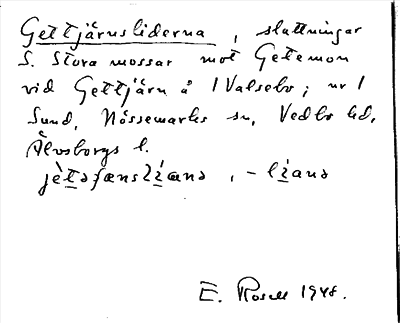 Gettjärnsliderna, sluttningar
S. Stora mossar mot Getemon
vid Gettjärn å 1 Valsebo; nr 1
Sund, Nössemarks sn, Vedbo hd,
Älvsborgs l.
E. Rosell 1948.